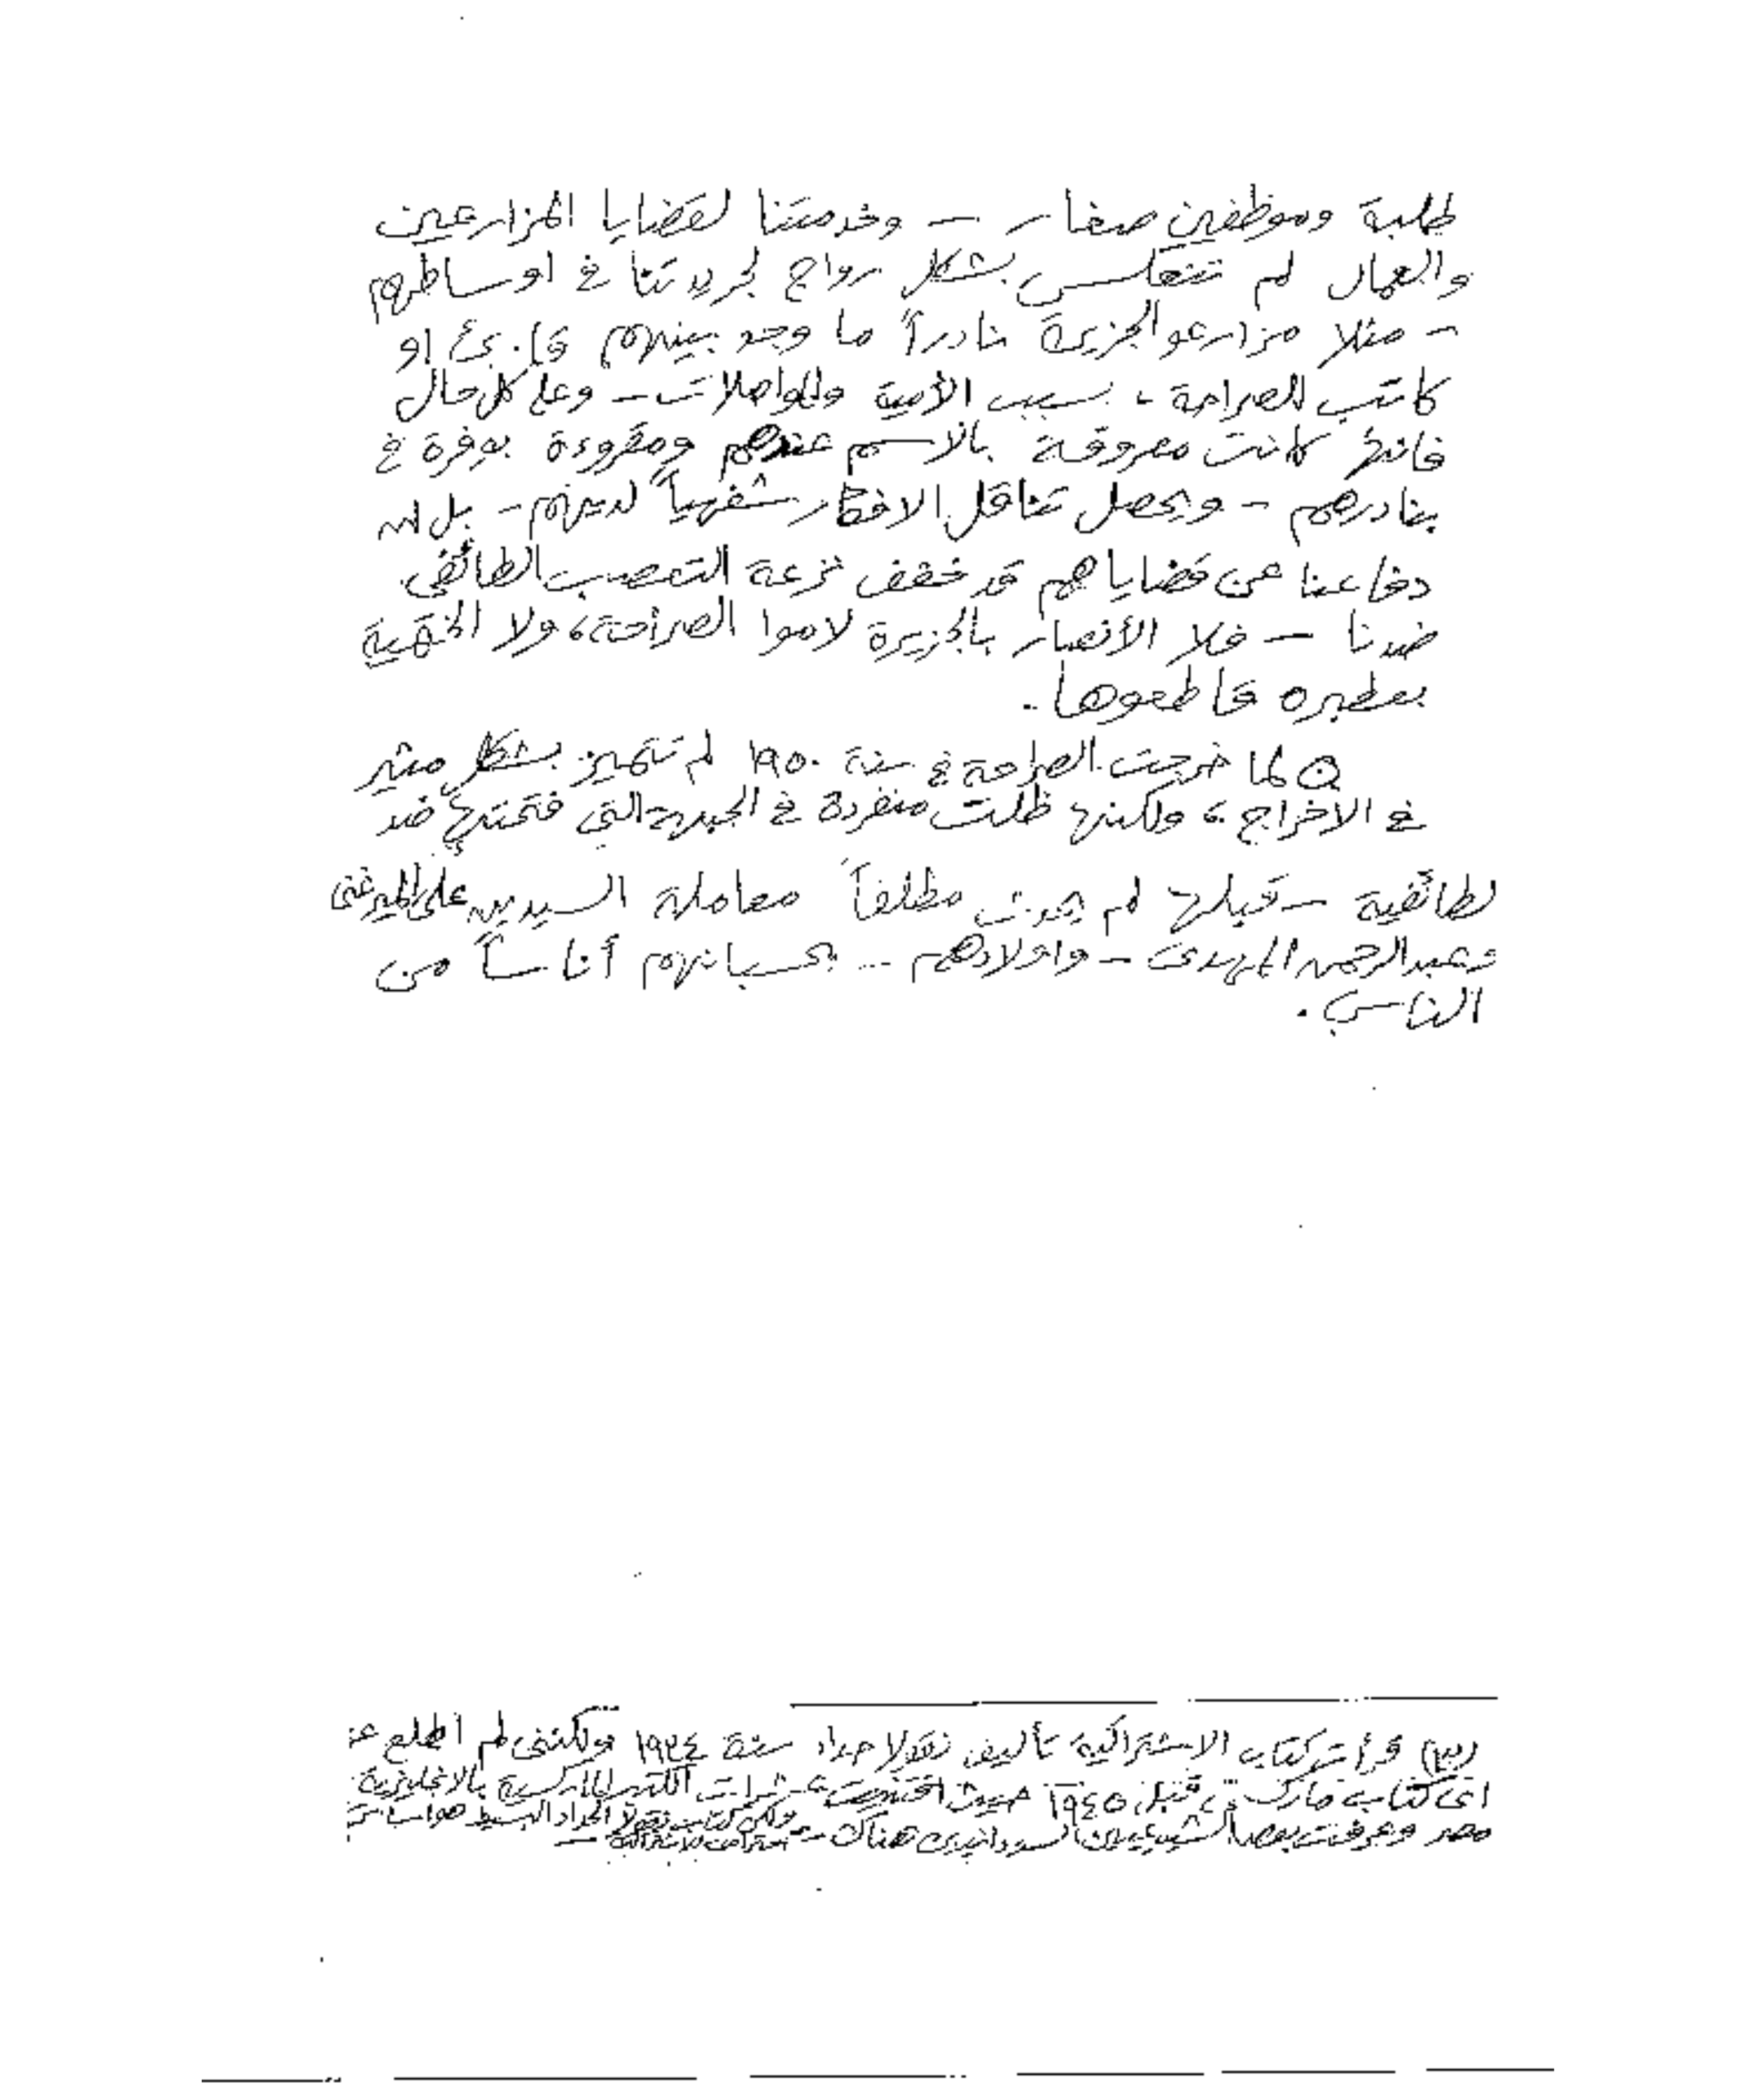 طلبة وموظفين صغار — وخدمتنا لقضايا المزارعين
والعمال لم تنعكس بشكل رواج لجريدتنا في اوساطهم
– مثلا مزارعو الجزيرة نادراً ما وجد بينهم قارئ او
كاتب للصراحة، بسبب الأمية والمواصلات – وعلى كل حال
فانها كانت معروفة بالاسم عندهم ومقروءة بوفرة في
بنادرهم – ويحصل تناقل الافكار شفهياً لديهم – بل ان
دفاعنا عن قضاياهم قد خفف نزعة التعصب الطائفي
ضدنا — فلا الأنصار بالجزيرة لاموا الصراحة، ولا الختمية
بعطبره قاطعوها.
لما خرجت الصراحة في سنة ١٩٥٠ لم تتميز بشكل مثير
في الاخراج، ولكنها ظلت منفردة في الجبهة التي فتحتها ضد
لطائفية – قبلها لم يحدث مطلقاً معاملة السيدين على الميرغنى
وعبد الرحمن المهدى – واولادهم – بحسبانهم أناساً من
الناس.
(٣) قرأت كتاب الاشتراكية تأليف نقولا حداد سنة ١٩٣٤ ولكننى لم اطلع
اى كتاب ماركسى قبل ١٩٤٥ حيث اقتنيت عشرات الكتب الماركسية بالانجليزية
مصر وعرفت بعض الشيوعيين السودانيين هناك – ولكن كتاب نقولا الحداد البسيط هو اساس